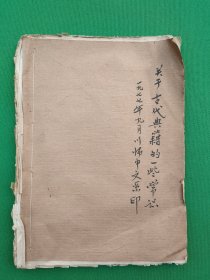 关于古代典籍的一些常识
一九七七年九月川师中文系印